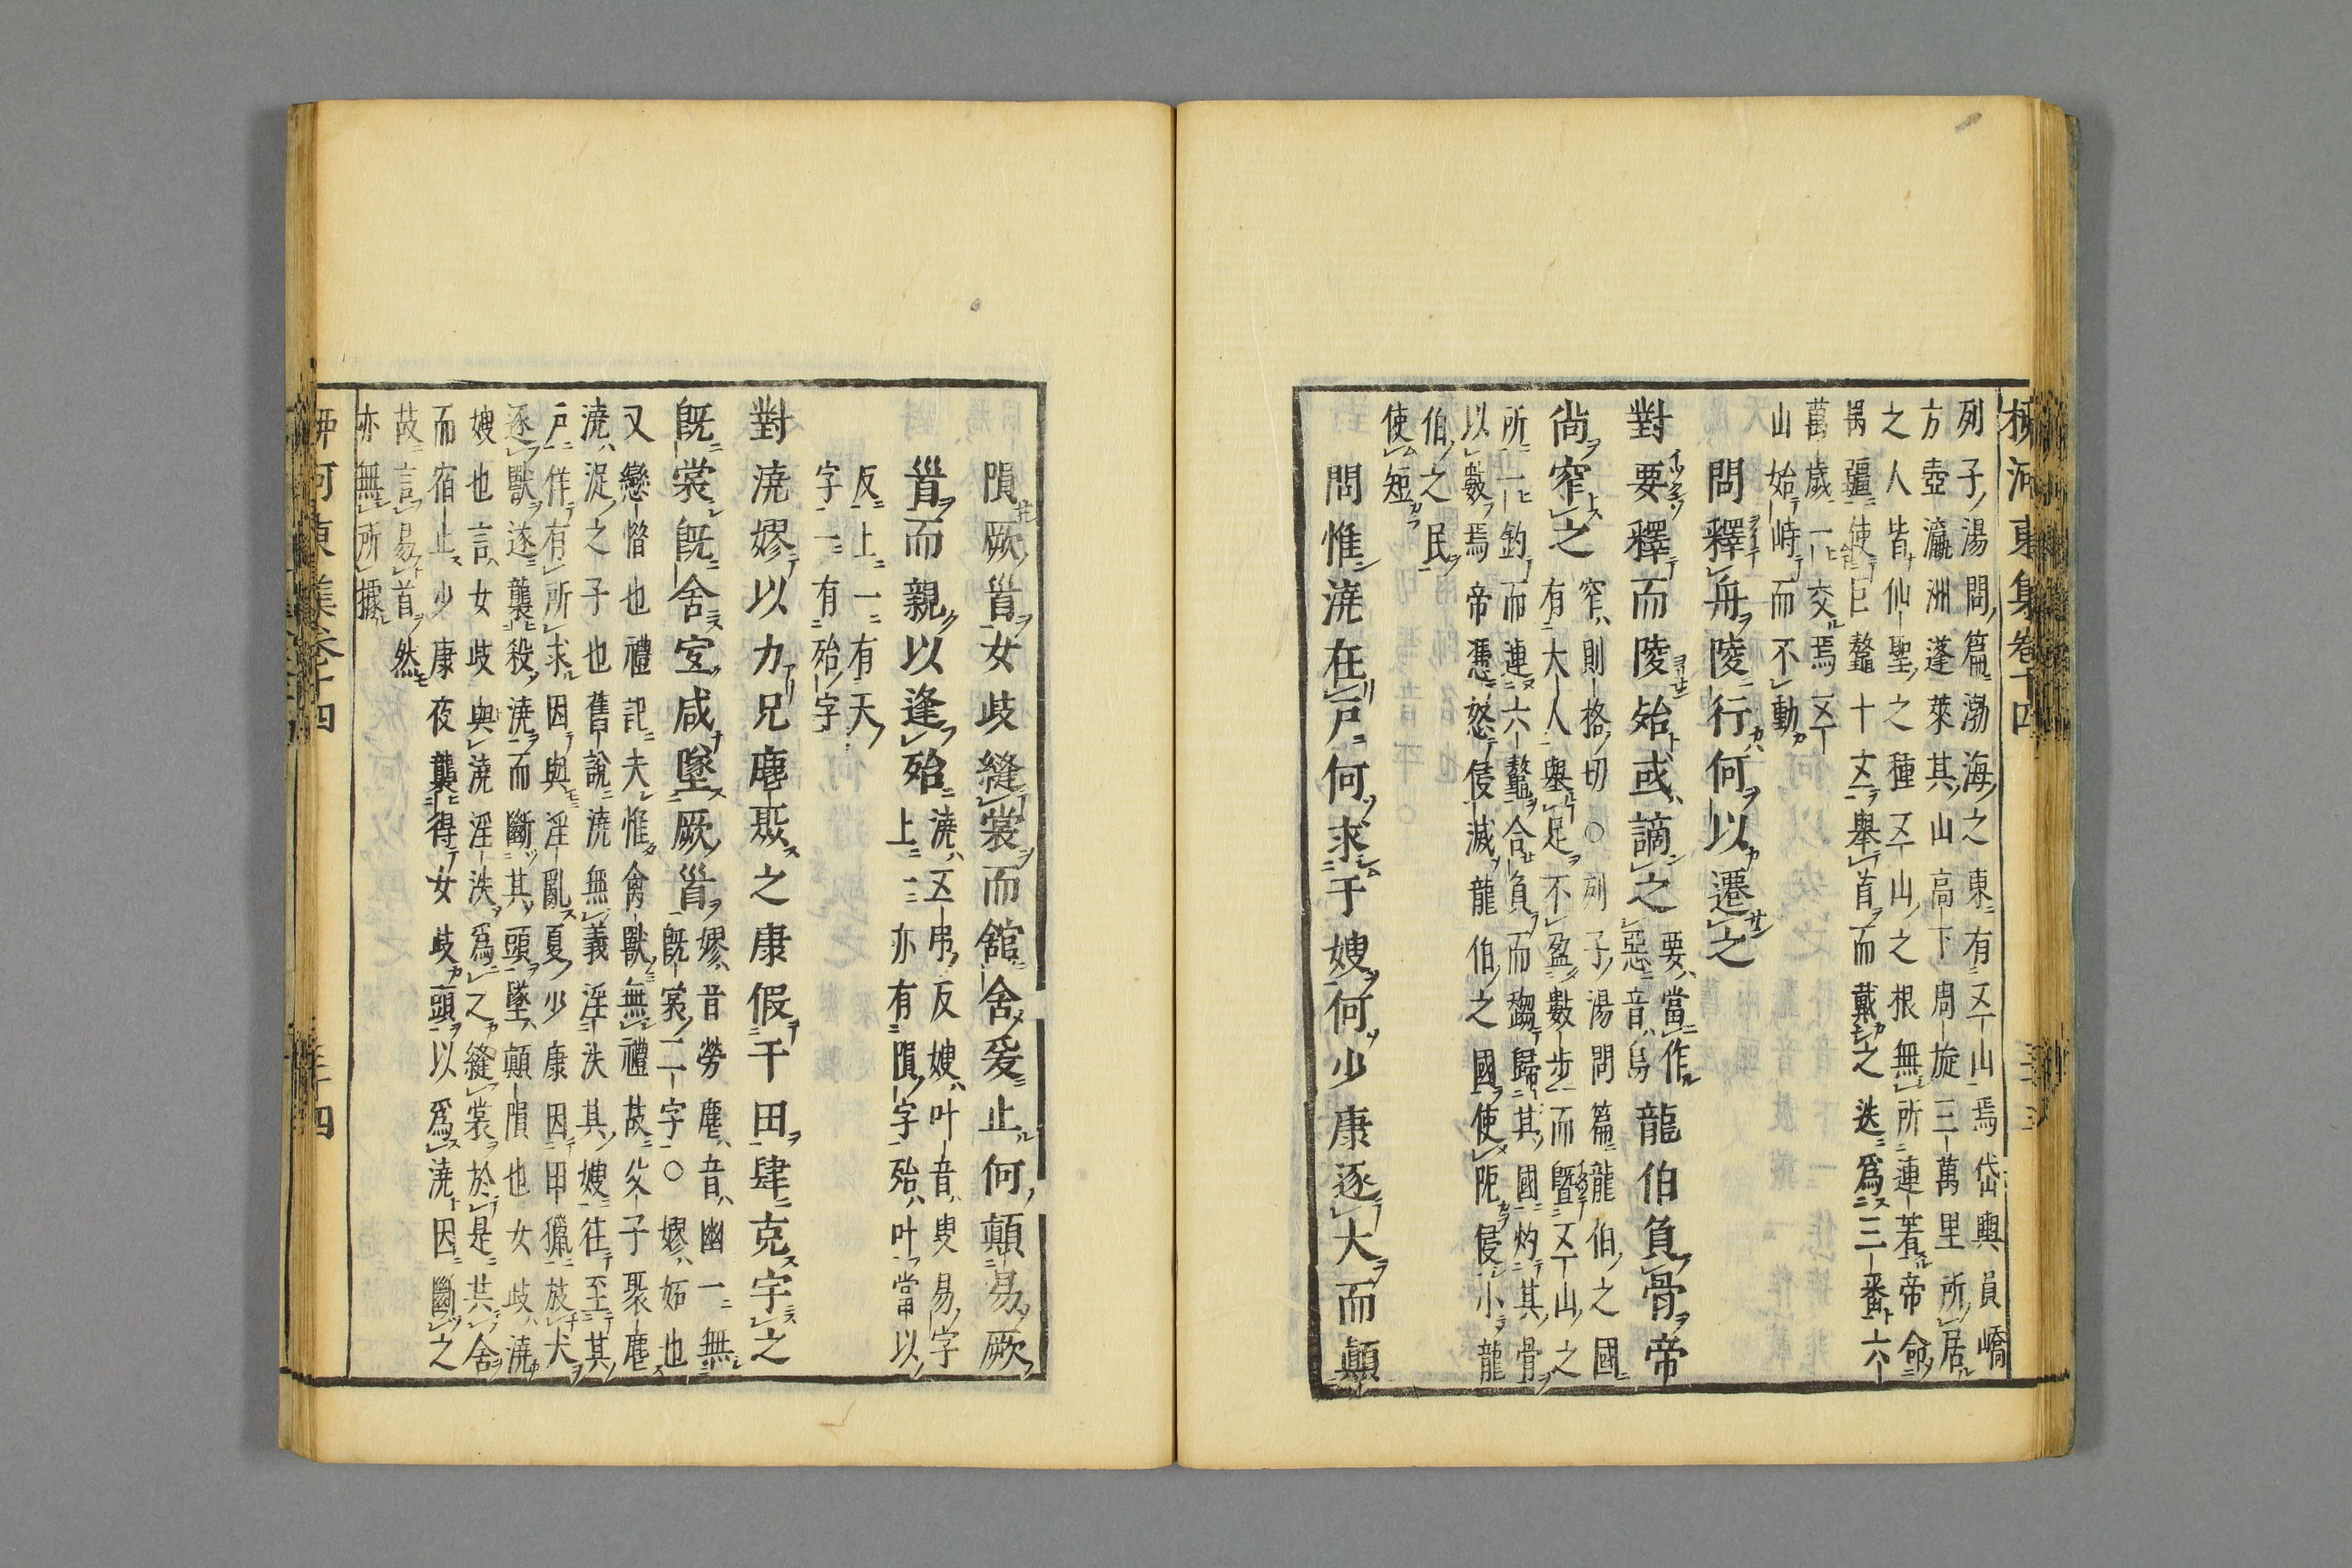 列子湯問篇渤海之東有五山焉岱輿員嶠
方壺瀛洲蓬萊其山高下周旋三萬里所居
之人皆仙聖之種五山之根無所連著帝命
禺彊使巨鼇十五舉首而戴之迭爲三番六
萬歲一交焉五
山始峙而不動
問釋舟陵行何以遷之
對要釋而陵殆或謫之
要當作
惡音烏
龍伯負骨帝
尚窄之
窄則格切○列子湯問篇龍伯之國
有大人舉足不盈數步而曁五山之
所一釣而連六鼇合負而趨歸其國灼其骨
以數焉帝憑怒侵減龍伯之國使阨侵小龍
伯之民
使短
問惟澆在戸何求于嫂何少康逐犬而顚
隕厥首女歧縫裳而館舍爰止何顚易厥
首而親以逢殆
澆五弔反嫂叶音叟易字
上一亦有隕字殆叶當以
反上一有天
字一有殆字
對澆嫪以力兄麀聚之康假于田肆克宇之
既裳既舍宜咸墜厥首
嫪音勞麀音幽一無
既裳二字○嫪妬也
又戀惜也禮記夫惟禽獸無禮故父子聚麀
澆浞之子也舊説澆無義淫泆其嫂往至其
戸佯有所求因與淫亂夏少康因田獵放犬
逐獸遂襲殺澆而斷其頭墜顚隕也女歧澆
嫂也言女歧與澆淫泆爲之縫裳於是共舍
而宿止少康夜襲得女歧頭以爲澆因斷之
故言易首然
亦無所據
柳河東集卷十四